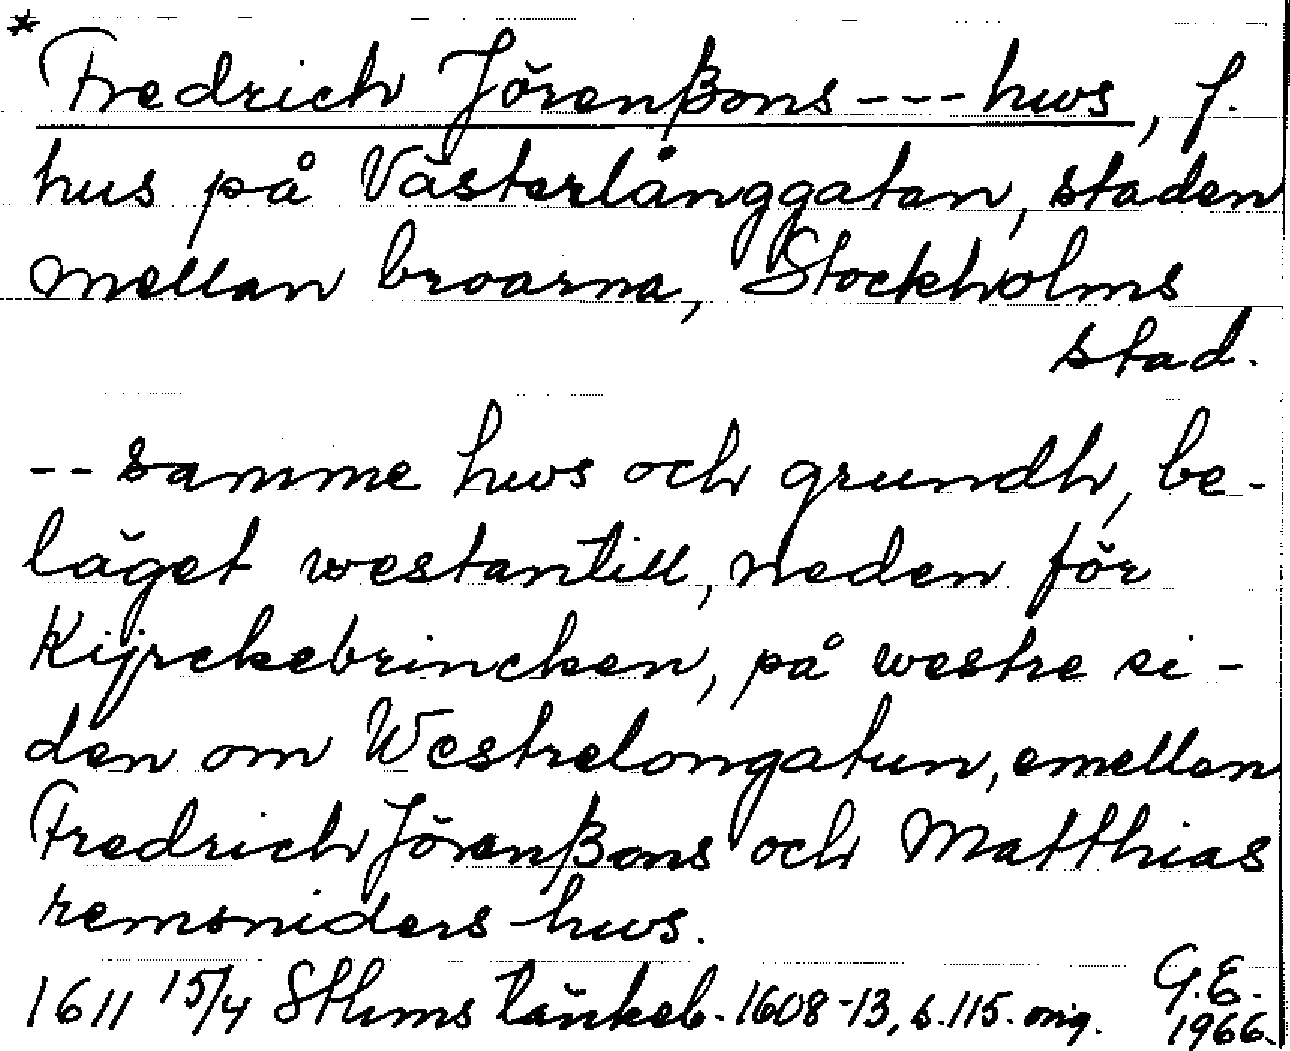 * Fredrich Jörenßons --- hws, f.
hus på Västerlånggatan, staden
mellan broarna, Stockholms
stad.
-- samme hws och grundh, be-
läget westantill, neden för
Kijrckebrincken, på westre si-
den om Westrelongatun, emellan
Fredrich Jörenßons och Matthias
remsniders hws.
1611 15/4 Sthms tänkeb. 1608-13, s. 115. orig. G.E.
1966.